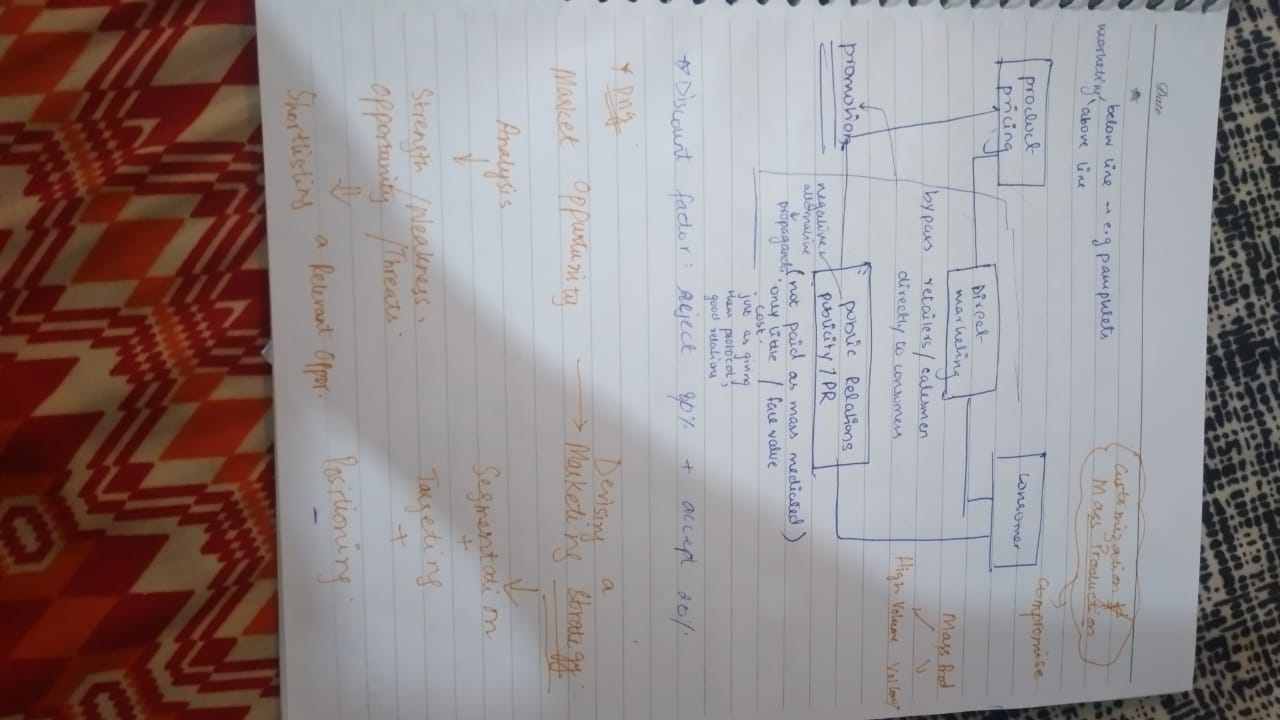 Date
marketing
below line → e.g pamphlets
above line
Customization &
Mass Production
Compromise
product
pricing
Consomer
Direct
marketing
Mass Prod
High Volume
bypass retailers / salesmen
directly to consumers
promotion
public Relations
publicity / PR
negative
alternative
propaganda
(not paid as mass mediated)
only little / face value
cost.
just as giving
them protocol,
good relations
* Discount factor: reject 80% + accept 20%
* png
Market Oppurtunity → Devising a
Marketing Strategy
Analysis
Strength / Weakness,
Opportunity / Threats
Shortlisting a Relevant Oppor.
Segmentation
+
Targeting
+
Positioning